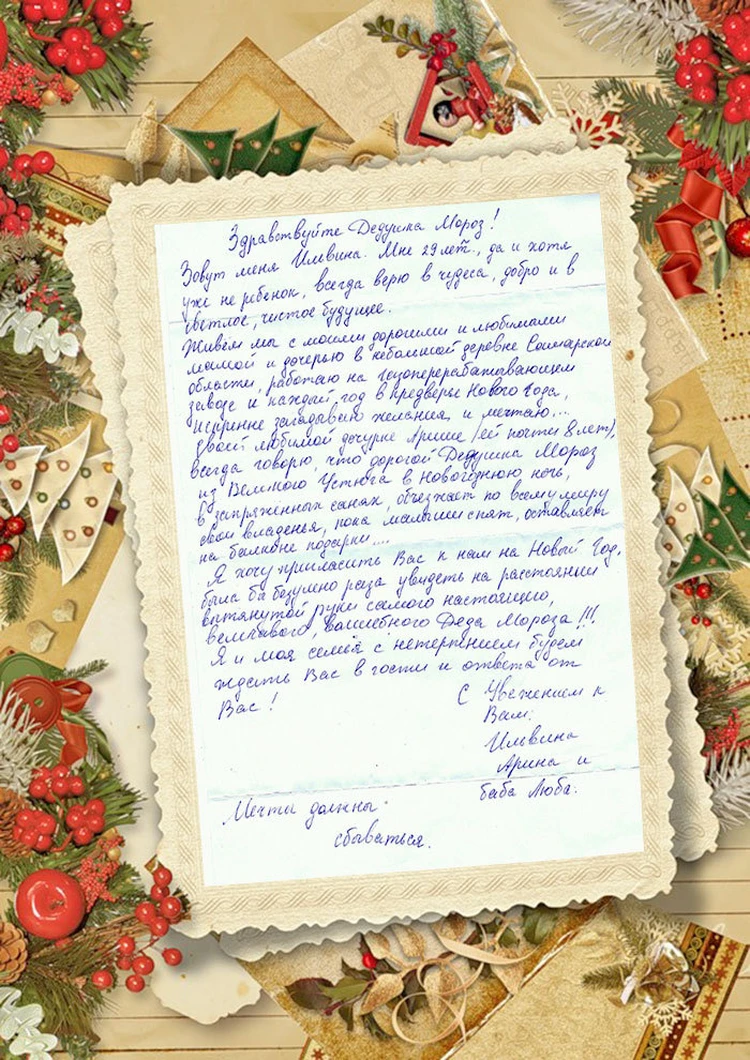 Здравствуйте Дедушка Мороз!
Зовут меня Ильвина. Мне 29 лет., да и хотя
уже не ребёнок, всегда верю в чудеса, добро и в
светлое, чистое будущее.
Живём мы с моими дорогими и любимыми
мамой и дочерью в небольшой деревне Самарской
области, работаю на газоперерабатывающем
заводе и каждый год в предверье Нового Года,
искренне загадываю желания, и мечтаю...
Своей любимой дочурке Арише (ей почти 8 лет),
всегда говорю, что дорогой Дедушка Мороз
из Великого Устюга в Новогоднюю ночь,
в запряженных санях, объезжает по всему миру
свои владенья, пока малыши спят, оставляет
на балконе подарки....
Я хочу пригласить Вас к нам на Новый Год,
была бы безумно рада увидеть на расстоянии
вытянутой руки самого настоящего,
величавого, волшебного Деда Мороза!!!
Я и моя семья с нетерпением будем
ждать Вас в гости и ответа от
Вас!
С Уважением к
Вам:
Ильвина
Арина и
баба Люба.
Мечты должны
сбываться.